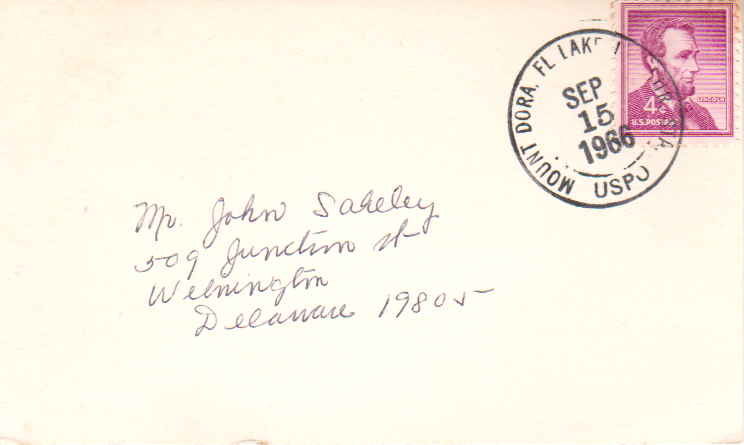 MOUNT DORA, FL LAKE
SEP
15
1966
USPO
4¢
LINCOLN
U.S. POSTAGE
Mr. John Sakeley
509 Junction st
Wilmington
Delaware 19805